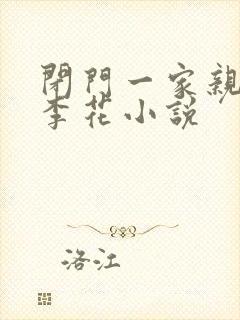 閉門一家親
李花小說
洛江